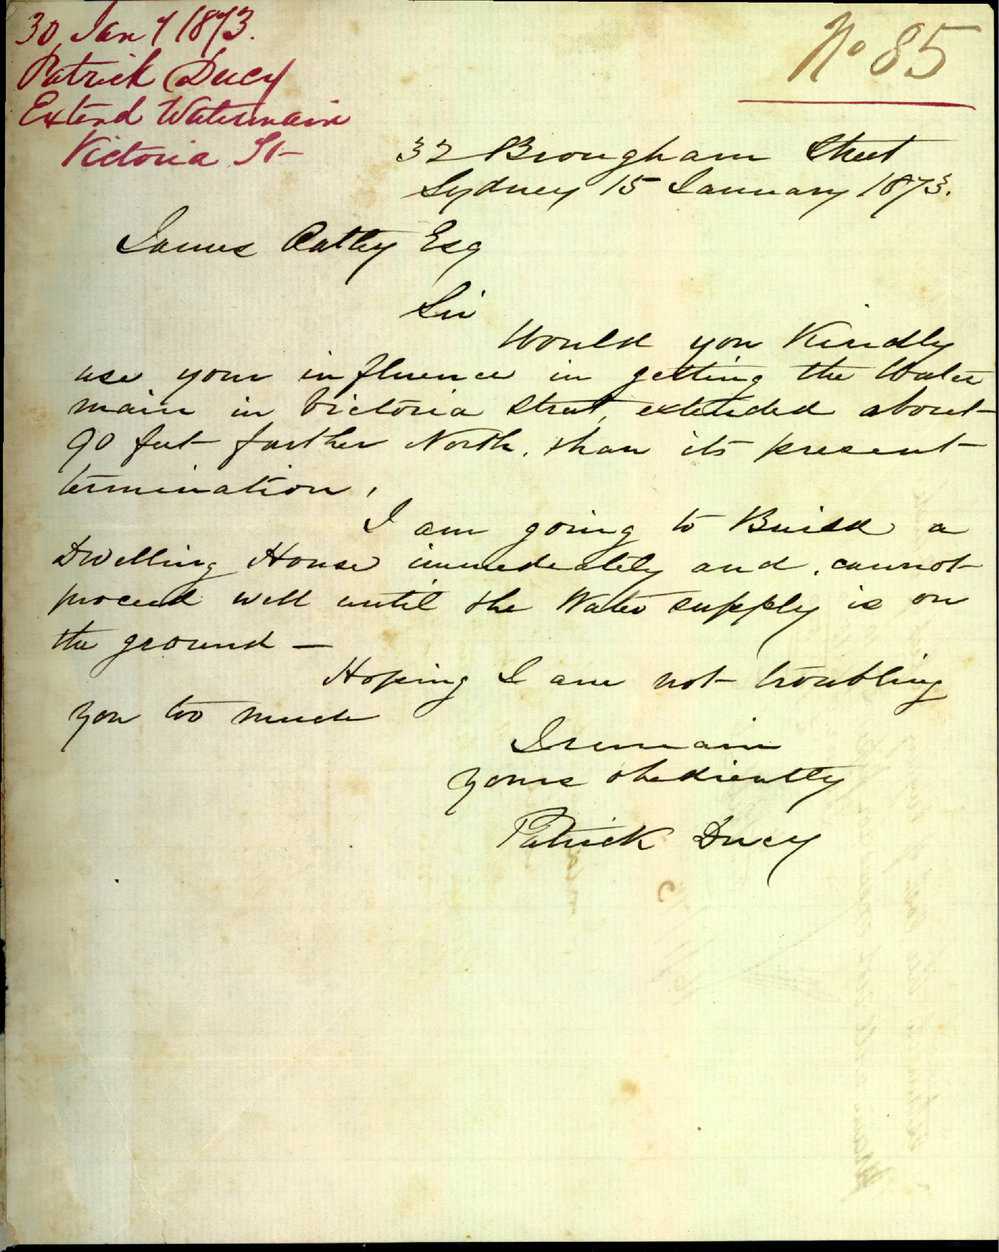 30 Jany 1873.
Patrick Ducy
Extend Watermain
Victoria St
No 85
32 Brougham Street
Sydney 15 January 1873.
James Oatley Esq
Sir
Would you Kindly
use your influence in getting the Water
main in Victoria Street, extended about
90 feet farther North, than its present
termination,
I am going to Build a
Dwelling House immediately and, cannot
proceed well until the Water supply is on
the ground —
Hoping I am not troubling
you too much
I remain
yours obediently
Patrick Ducy